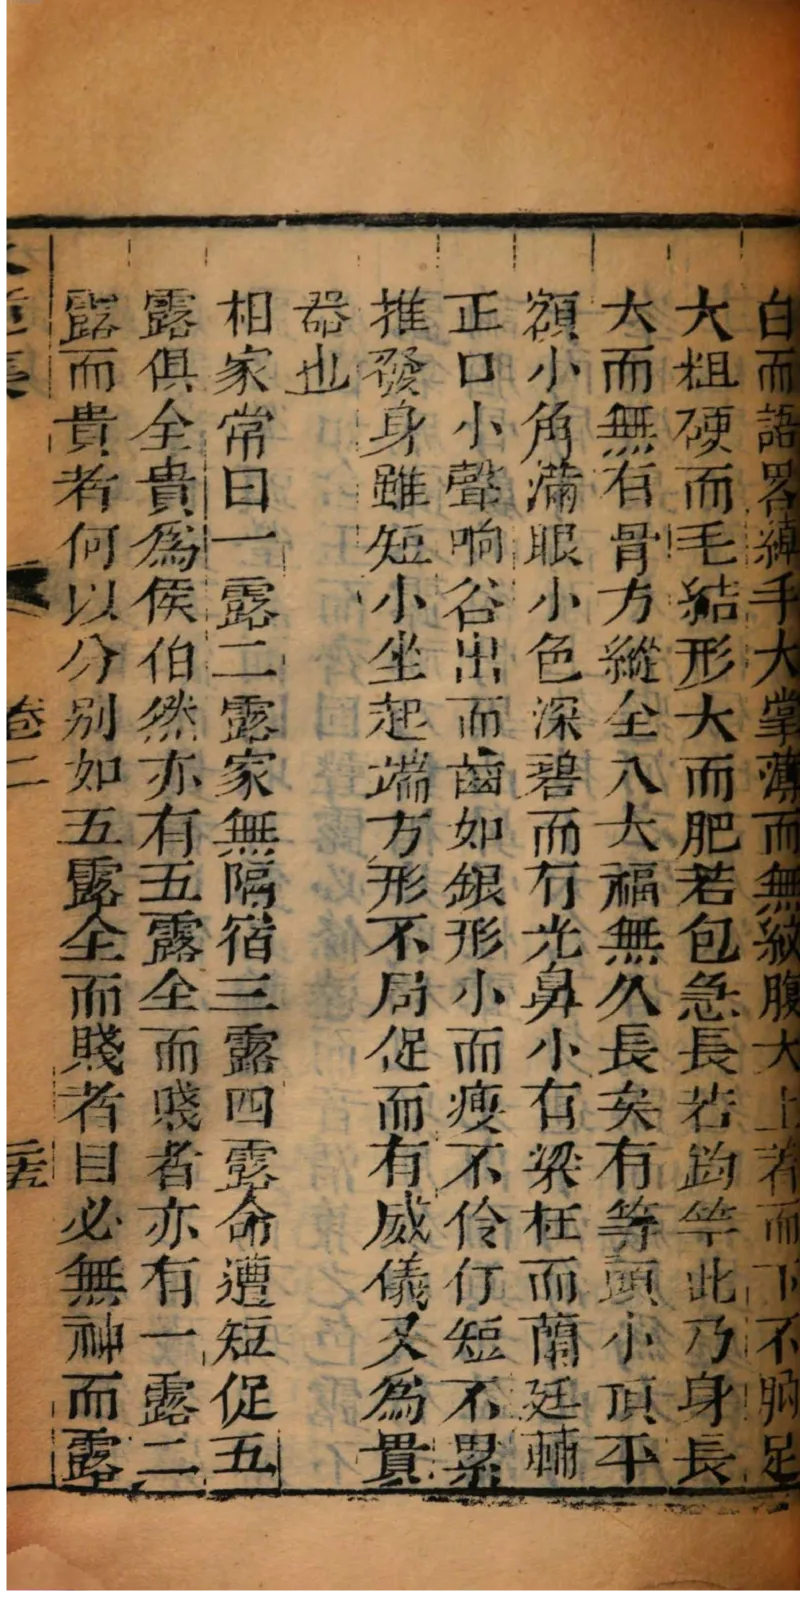 白而語畧繟手大掌薄而無紋腹大上著而下不腩足
大粗硬而毛結形大而肥若包急長若釣竿此乃身長
大而無有骨方縱全八大福無久長矣有等頭小頂平
額小角滿眼小色深碧而有光鼻小有梁枉而蘭廷輔
正口小聲响谷出而齒如銀形小而瘦不伶仃短不累
推發身雖短小坐起端方形不局促而有威儀又為貴
器也
相家常曰一露二露家無隔宿三露四露命遭短促五
露俱全貴為侯伯然亦有五露全而賤者亦有一露二
露而貴者何以分别如五露全而賤者目必無神而露
卷二
二五